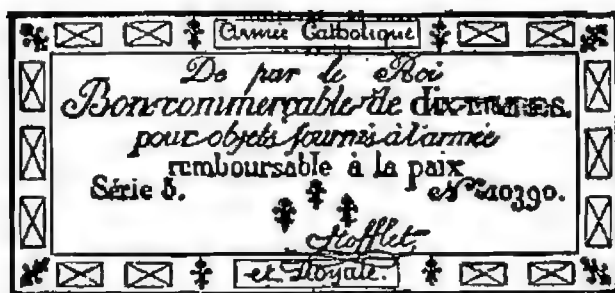 Armée Catholique
De par le Roi
Bon commerçable de dix
pour objets fournis à l'armée
remboursable à la paix
Série Nº 10390.
Stofflet
et Royale.